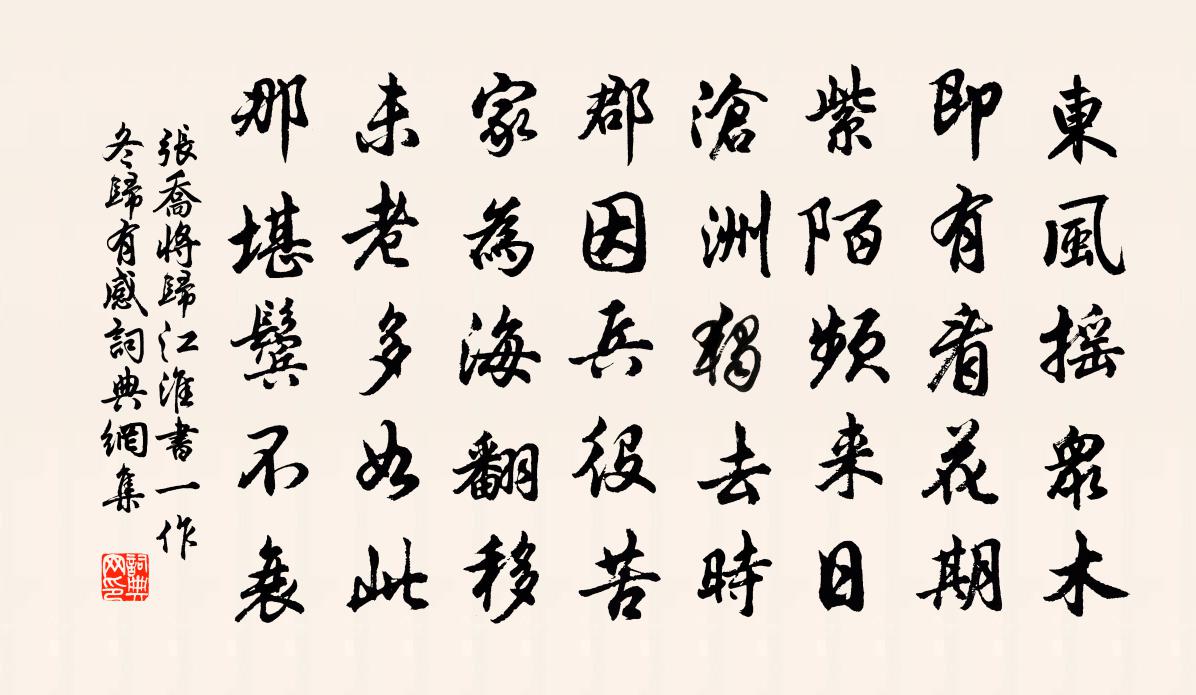 東風揺眾木
即有看花期
紫陌頻来日
滄洲獨去時
郡因兵役苦
家為海翻移
未老多如此
那堪鬢不衰
張喬將歸江淮書一作
冬歸有感詞典網集
詞典网印